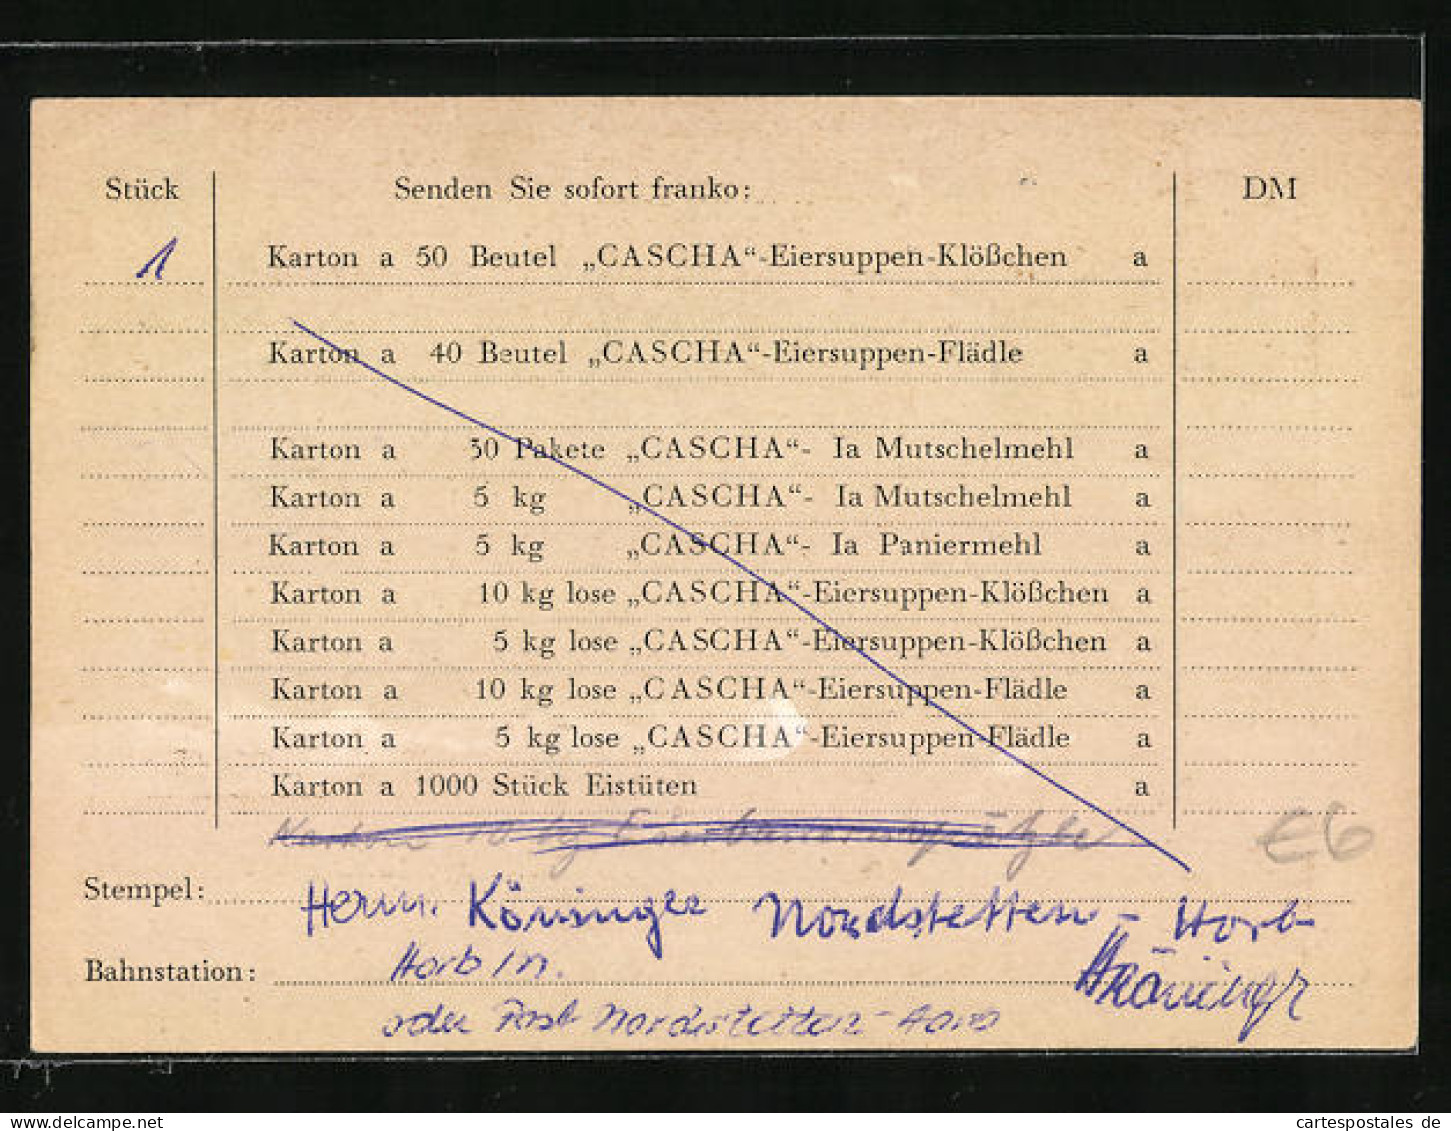 Stück Senden Sie sofort franko: DM
1 Karton a 50 Beutel „CASCHA“-Eiersuppen-Klößchen a
Karton a 40 Beutel „CASCHA“-Eiersuppen-Flädle a
Karton a 30 Pakete „CASCHA“- Ia Mutschelmehl a
Karton a 5 kg „CASCHA“- Ia Mutschelmehl a
Karton a 5 kg „CASCHA“- Ia Paniermehl a
Karton a 10 kg lose „CASCHA“-Eiersuppen-Klößchen a
Karton a 5 kg lose „CASCHA“-Eiersuppen-Klößchen a
Karton a 10 kg lose „CASCHA“-Eiersuppen-Flädle a
Karton a 5 kg lose „CASCHA“-Eiersuppen-Flädle a
Karton a 1000 Stück Eistüten a
Karton 10 kg
€6
Stempel: Herm. Köninger Nordstetten - Horb
Bahnstation: Horb
oder Post Nordstetten - Horb
cartespostales de